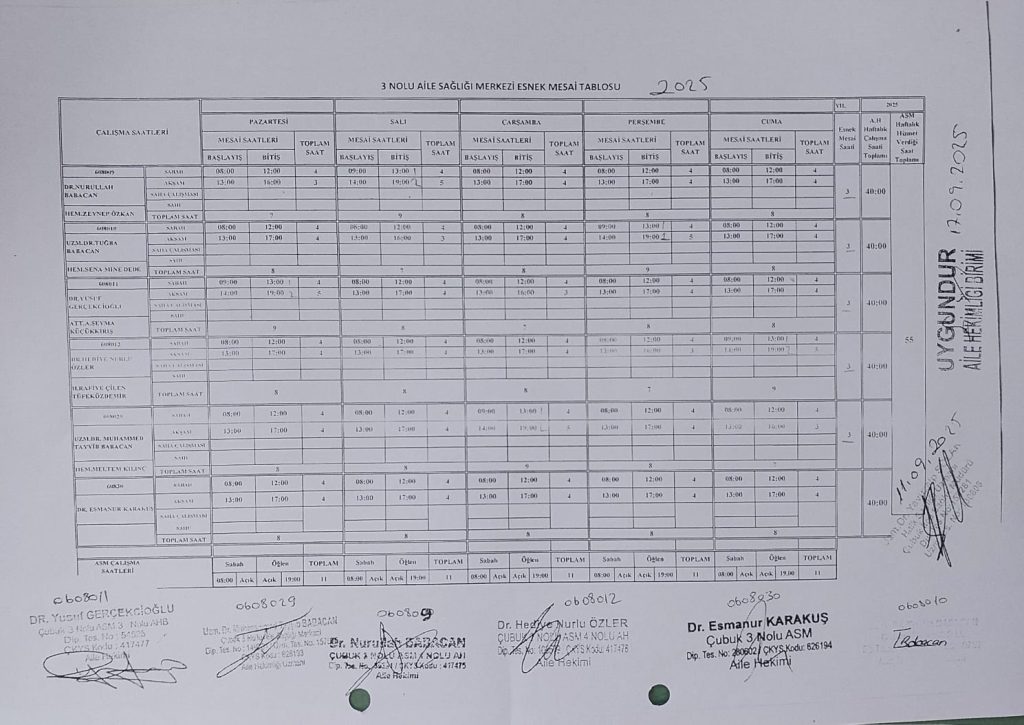 3 NOLU AİLE SAĞLIĞI MERKEZİ ESNEK MESAİ TABLOSU 2025
ÇALIŞMA SAATLERİ PAZARTESİ SALI ÇARŞAMBA PERŞEMBE CUMA Esnek Mesai Saati 2025
MESAİ SAATLERİ TOPLAM SAAT MESAİ SAATLERİ TOPLAM SAAT MESAİ SAATLERİ TOPLAM SAAT MESAİ SAATLERİ TOPLAM SAAT MESAİ SAATLERİ TOPLAM SAAT A.H Haftalık Çalışma Saati Toplamı ASM Haftalık Hizmet Verdiği Saat Toplamı
BAŞLAYIŞ BİTİŞ BAŞLAYIŞ BİTİŞ BAŞLAYIŞ BİTİŞ BAŞLAYIŞ BİTİŞ BAŞLAYIŞ BİTİŞ
SABAH 08:00 12:00 4 09:00 13:00 4 08:00 12:00 4 08:00 12:00 4 08:00 12:00 4
DR.NURULLAH BABACAN AKŞAM 13:00 16:00 3 14:00 19:00 5 13:00 17:00 4 13:00 17:00 4 13:00 17:00 4 3 40:00
SAHA ÇALIŞMASI
HEM.ZEYNEP ÖZKAN TOPLAM SAAT 7 9 8 8 8
SABAH 08:00 12:00 4 08:00 12:00 4 08:00 12:00 4 09:00 13:00 4 08:00 12:00 4
UZM.DR.TUĞBA BABACAN AKŞAM 13:00 17:00 4 13:00 16:00 3 13:00 17:00 4 14:00 19:00 5 13:00 17:00 4 3 40:00
SAHA ÇALIŞMASI
HEM.SENA MİNE DEDE TOPLAM SAAT 8 7 8 9 8
608011 SABAH 09:00 13:00 4 08:00 12:00 4 08:00 12:00 4 08:00 12:00 4 08:00 12:00 4
DR.YUSUF GERÇEKCİOĞLI AKŞAM 14:00 19:00 5 13:00 17:00 4 13:00 16:00 3 13:00 17:00 4 13:00 17:00 4 3 40:00
SAHA ÇALIŞMASI
ATT.A.ŞEYMA KÜÇÜKKIRIŞ TOPLAM SAAT 9 8 7 8 8
608012 SABAH 08:00 12:00 4 08:00 12:00 4 08:00 12:00 4 08:00 12:00 4 09:00 13:00 4
DR.HEDİYE NURLU ÖZLER AKŞAM 13:00 17:00 4 13:00 17:00 4 13:00 17:00 4 13:00 16:00 3 14:00 19:00 5 3 40:00 55
SAHA ÇALIŞMASI
ÇİLEN TÜFEKÖZDEMİR TOPLAM SAAT 8 8 8 7 9
SABAH 08:00 12:00 4 08:00 12:00 4 09:00 13:00 4 08:00 12:00 4 08:00 12:00 4
UZM.DR. MUHAMMED TAYYİB BABACAN AKŞAM 13:00 17:00 4 13:00 17:00 4 14:00 19:00 5 13:00 17:00 4 13:00 16:00 3 3 40:00
SAHA ÇALIŞMASI
HEM.MELTEM KILINÇ TOPLAM SAAT 8 8 9 8 7
60830 SABAH 08:00 12:00 4 08:00 12:00 4 08:00 12:00 4 08:00 12:00 4 08:00 12:00 4
DR. ESMANUR KARAKUŞ AKŞAM 13:00 17:00 4 13:00 17:00 4 13:00 17:00 4 13:00 17:00 4 13:00 17:00 4 40:00
SAHA ÇALIŞMASI
TOPLAM SAAT 8 8 8 8 8
ASM ÇALIŞMA SAATLERİ Sabah Öğlen TOPLAM Sabah Öğlen TOPLAM Sabah Öğlen TOPLAM Sabah Öğlen TOPLAM Sabah Öğlen TOPLAM
08:00 Açık Açık 19:00 11 08:00 Açık Açık 19:00 11 08:00 Açık Açık 19:00 11 08:00 Açık Açık 19:00 11 08:00 Açık Açık 19:00 11
UYGUNDUR 17.09.2025
AİLE HEKİMLİĞİ BİRİMİ
11.09.2025
0608011
DR. Yusuf GERÇEKCİOĞLU
Çubuk 3 Nolu ASM 3 Nolu AHB
Dip. Tes. No : 54525
ÇKYS Kodu : 417477
Aile Hekimi
0608029
BABACAN
Aile Hekimliği Uzmanı
0608009
Dr. Nurullah BABACAN
ÇUBUK 3 NOLU ASM NOLU AH
ÇKYS Kodu : 417475
Aile Hekimi
0608012
Dr. Hediye Nurlu ÖZLER
ÇUBUK 3 NOLU ASM 4 NOLU AH
ÇKYS Kodu : 417476
Aile Hekimi
0608030
Dr. Esmanur KARAKUŞ
Çubuk 3 Nolu ASM
Dip. Tes. No: 280602 / ÇKYS Kodu: 626194
Aile Hekimi
0608010
T.Babacan